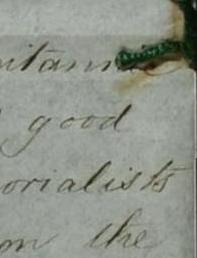 itannic
good
orialists
om the